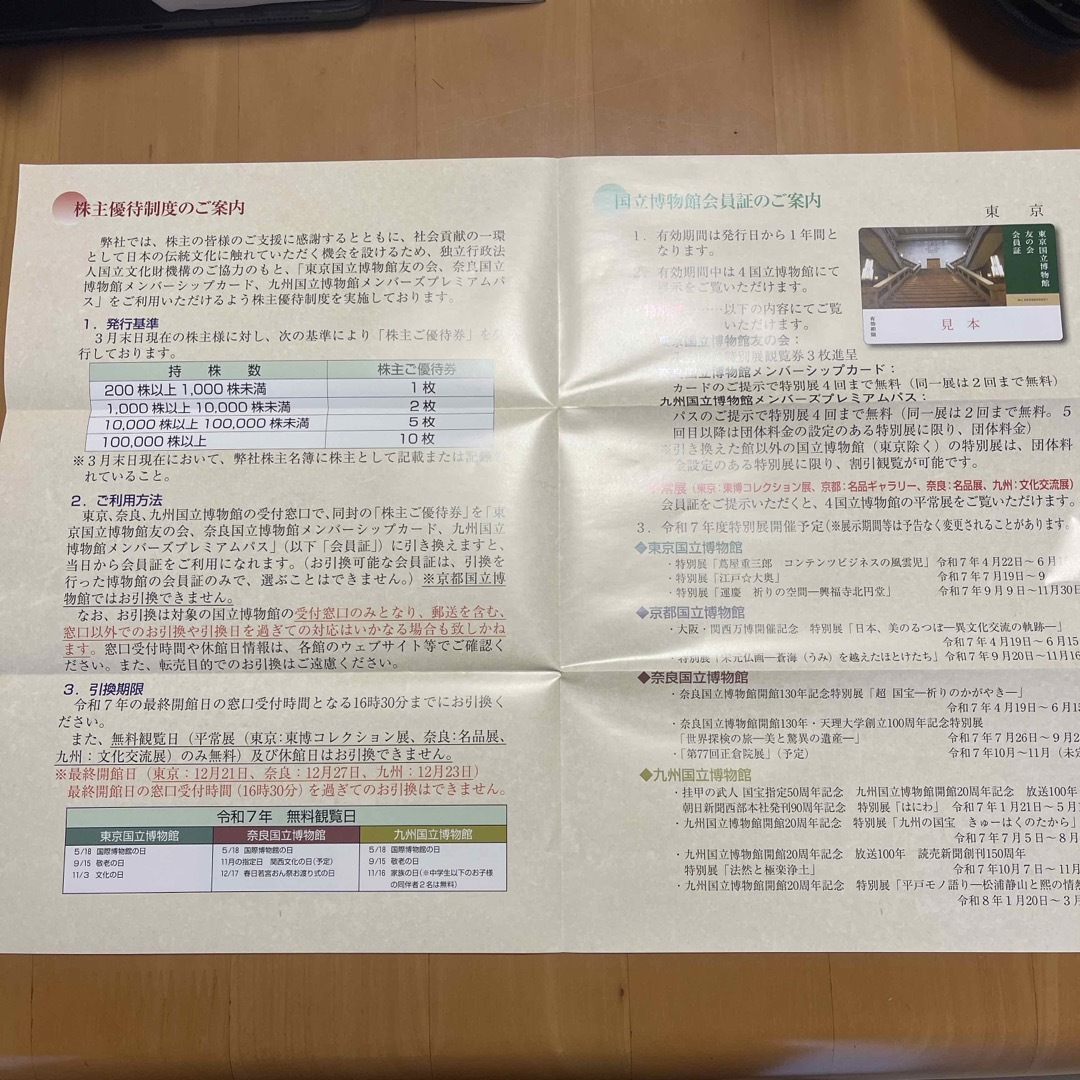 株主優待制度のご案内
弊社では、株主の皆様のご支援に感謝するとともに、社会貢献の一環
として日本の伝統文化に触れていただく機会を設けるため、独立行政法
人国立文化財機構のご協力のもと、「東京国立博物館友の会、奈良国立
博物館メンバーシップカード、九州国立博物館メンバーズプレミアムパ
ス」をご利用いただけるよう株主優待制度を実施しております。
1．発行基準
3月末日現在の株主様に対し、次の基準により「株主ご優待券」を発
行しております。
持 株 数 株主ご優待券
200株以上1,000株未満 1枚
1,000株以上10,000株未満 2枚
10,000株以上100,000株未満 5枚
100,000株以上 10枚
※3月末日現在において、弊社株主名簿に株主として記載または記録さ
れていること。
2．ご利用方法
東京、奈良、九州国立博物館の受付窓口で、同封の「株主ご優待券」を「東
京国立博物館友の会、奈良国立博物館メンバーシップカード、九州国立
博物館メンバーズプレミアムパス」（以下「会員証」）に引き換えますと、
当日から会員証をご利用になれます。（お引換可能な会員証は、引換を
行った博物館の会員証のみで、選ぶことはできません。）※京都国立博
物館ではお引換できません。
なお、お引換は対象の国立博物館の受付窓口のみとなり、郵送を含む、
窓口以外でのお引換や引換日を過ぎての対応はいかなる場合も致しかね
ます。窓口受付時間や休館日情報は、各館のウェブサイト等でご確認く
ださい。また、転売目的でのお引換はご遠慮ください。
3．引換期限
令和7年の最終開館日の窓口受付時間となる16時30分までにお引換く
ださい。
また、無料観覧日（平常展（東京：東博コレクション展、奈良：名品展、
九州：文化交流展）のみ無料）及び休館日はお引換できません。
※最終開館日（東京：12月21日、奈良：12月27日、九州：12月23日）
最終開館日の窓口受付時間（16時30分）を過ぎてのお引換はできません。
令和7年 無料観覧日
東京国立博物館 奈良国立博物館 九州国立博物館
5/18 国際博物館の日 5/18 国際博物館の日 5/18 国際博物館の日
9/15 敬老の日 11月の指定日 関西文化の日（予定） 9/15 敬老の日
11/3 文化の日 12/17 春日若宮おん祭お渡り式の日 11/16 家族の日（※中学生以下のお子様
の同伴者2名は無料）
国立博物館会員証のご案内
東 京
1．有効期間は発行日から1年間と
なります。
2．有効期間中は4国立博物館にて
展示をご覧いただけます。
……以下の内容にてご覧
いただけます。
東京国立博物館友の会：
特別展観覧券3枚進呈
奈良国立博物館メンバーシップカード：
カードのご提示で特別展4回まで無料（同一展は2回まで無料）
九州国立博物館メンバーズプレミアムパス：
パスのご提示で特別展4回まで無料（同一展は2回まで無料。5
回目以降は団体料金の設定のある特別展に限り、団体料金）
※引き換えた館以外の国立博物館（東京除く）の特別展は、団体料
金設定のある特別展に限り、割引観覧が可能です。
平常展（東京：東博コレクション展、京都：名品ギャラリー、奈良：名品展、九州：文化交流展）
会員証をご提示いただくと、4国立博物館の平常展をご覧いただけます。
3．令和7年度特別展開催予定（※展示期間等は予告なく変更されることがあります。
◆東京国立博物館
・特別展「蔦屋重三郎 コンテンツビジネスの風雲児」 令和7年4月22日～6月1
・特別展「江戸☆大奥」 令和7年7月19日～9
・特別展「運慶 祈りの空間―興福寺北円堂」 令和7年9月9日～11月30日
◆京都国立博物館
・大阪・関西万博開催記念 特別展「日本、美のるつぼ―異文化交流の軌跡―」
令和7年4月19日～6月15
・特別展「宋元仏画―蒼海（うみ）を越えたほとけたち」 令和7年9月20日～11月16
◆奈良国立博物館
・奈良国立博物館開館130年記念特別展「超 国宝―祈りのかがやき―」
令和7年4月19日～6月15
・奈良国立博物館開館130年・天理大学創立100周年記念特別展
「世界探検の旅―美と驚異の遺産―」 令和7年7月26日～9月2
・「第77回正倉院展」（予定） 令和7年10月～11月（未定
◆九州国立博物館
・挂甲の武人 国宝指定50周年記念 九州国立博物館開館20周年記念 放送100年
朝日新聞西部本社発刊90周年記念 特別展「はにわ」 令和7年1月21日～5月1
・九州国立博物館開館20周年記念 特別展「九州の国宝 きゅーはくのたから」
令和7年7月5日～8月
・九州国立博物館開館20周年記念 放送100年 読売新聞創刊150周年
特別展「法然と極楽浄土」 令和7年10月7日～11月
・九州国立博物館開館20周年記念 特別展「平戸モノ語り―松浦静山と熈の情熱
令和8年1月20日～3月
東京国立博物館
友の会
会員証
有効期限
見本